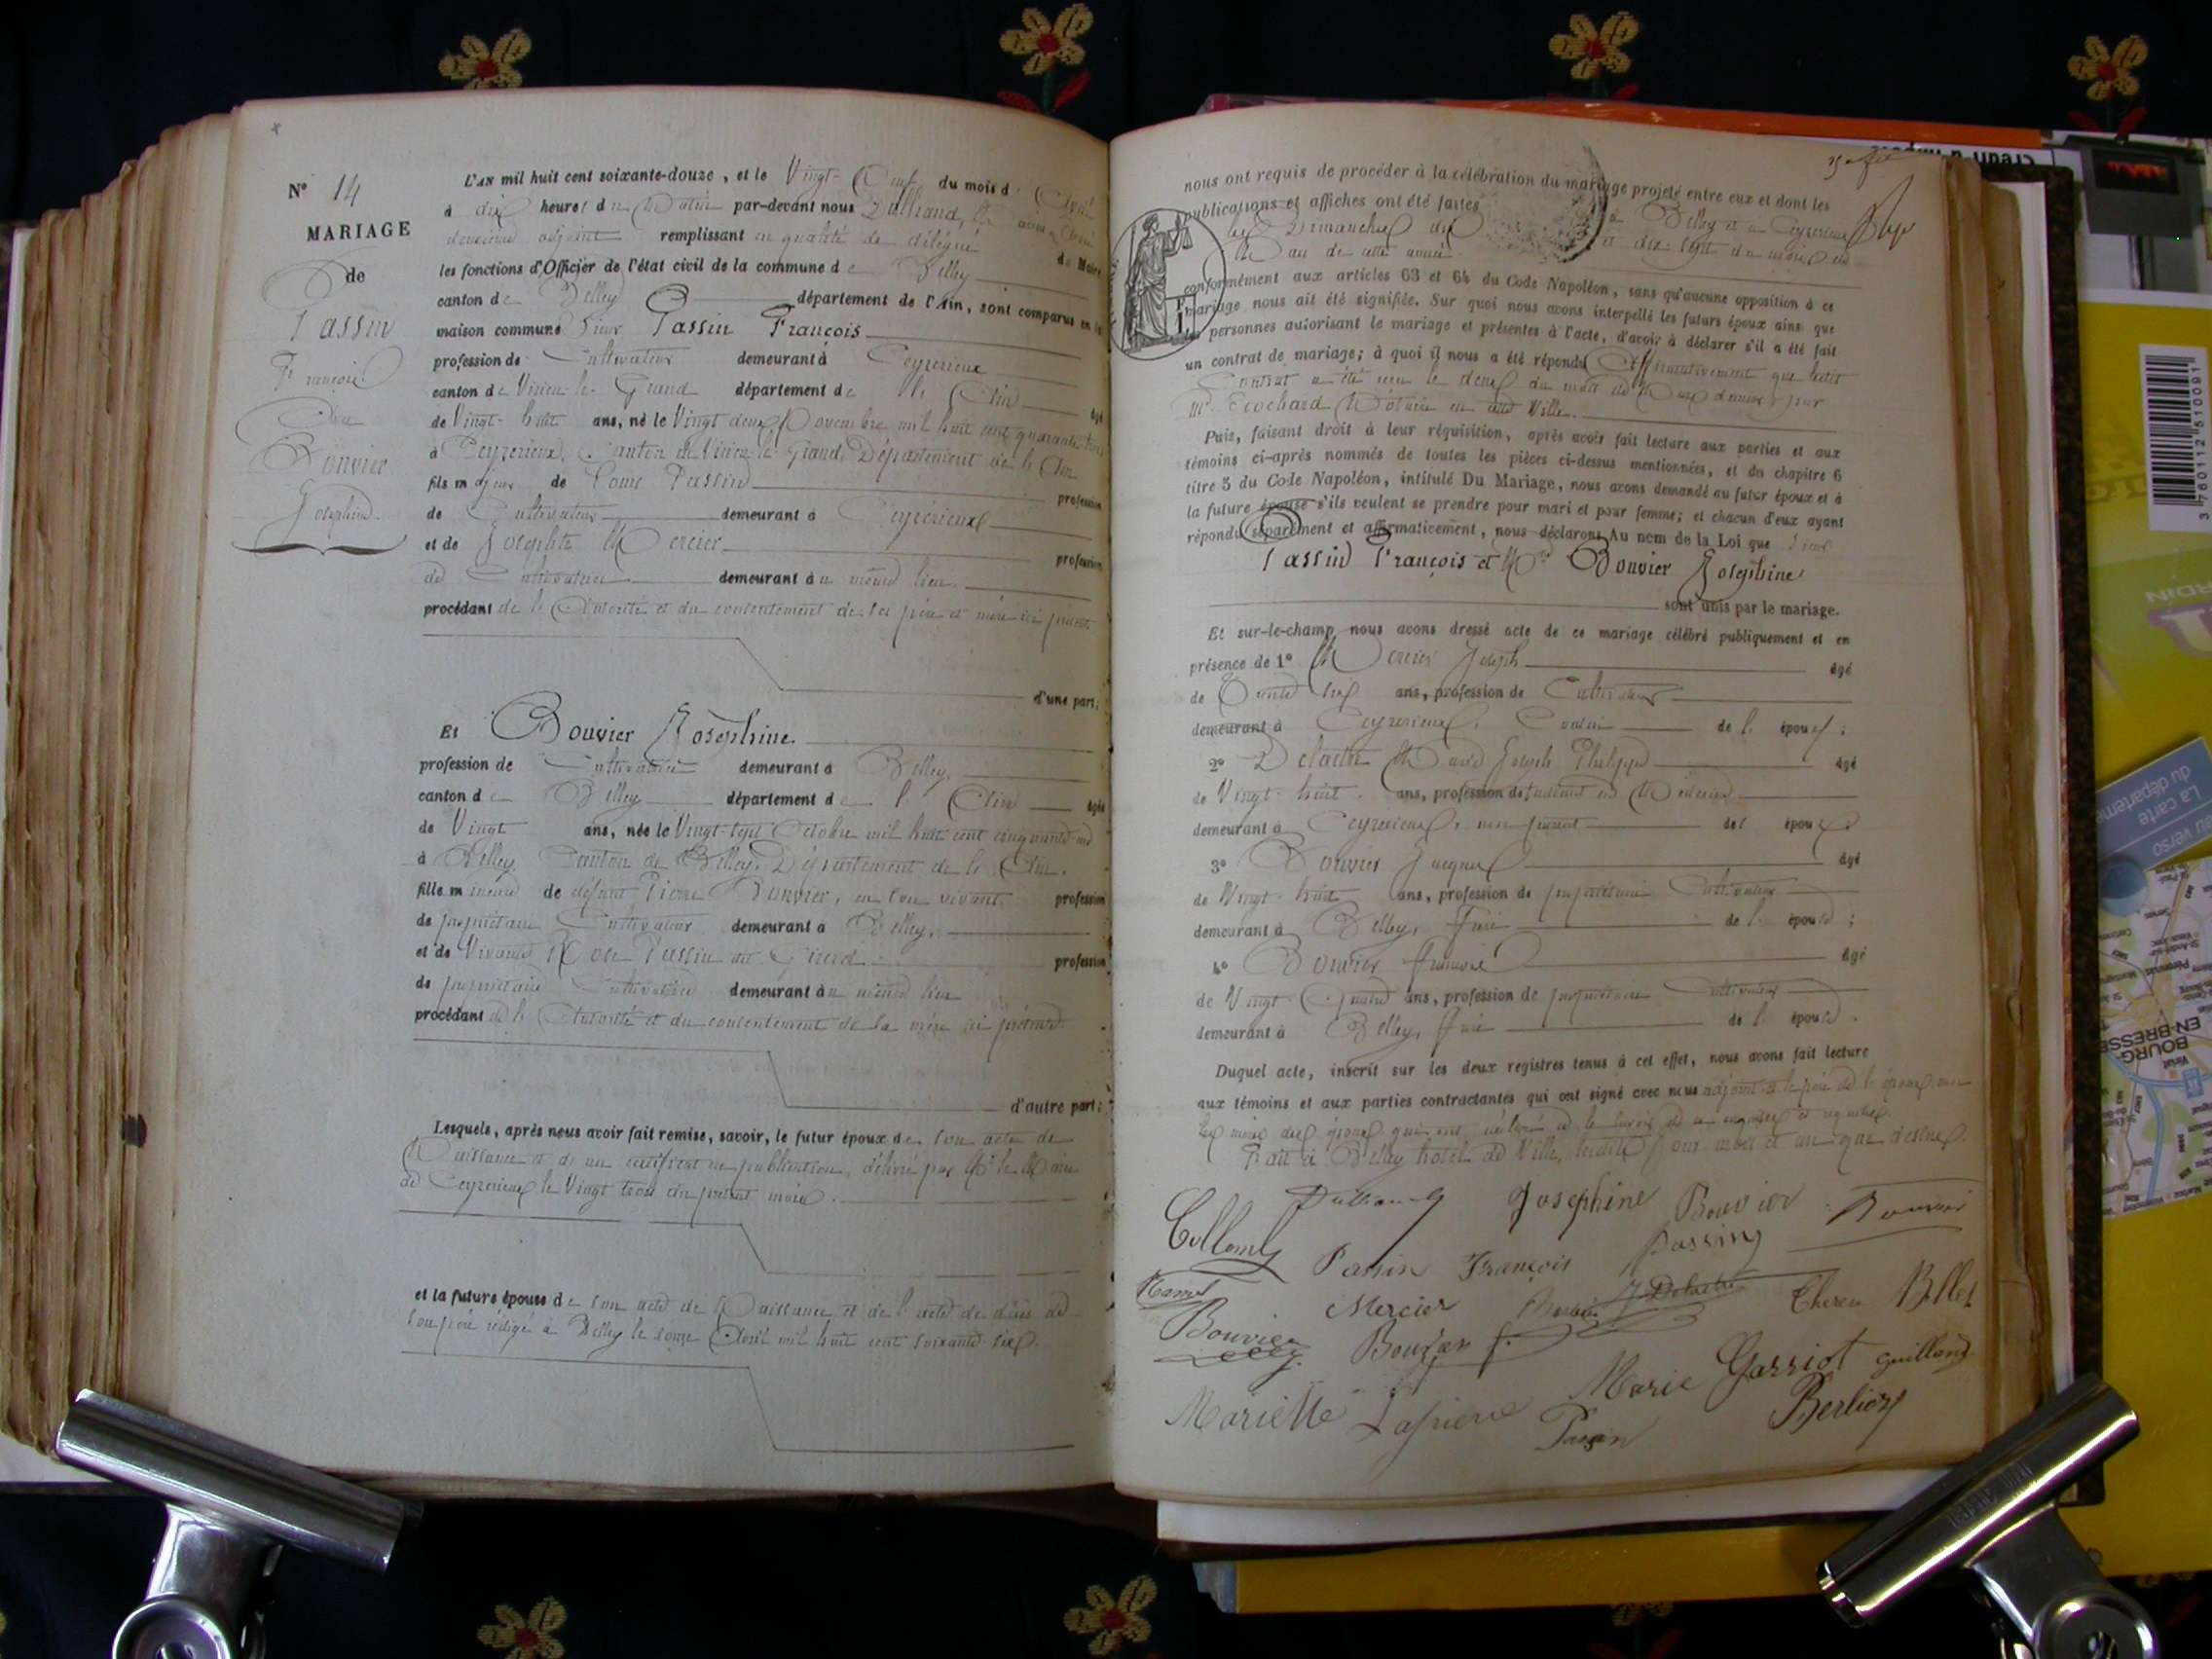 N° 14
MARIAGE
de
Passin
François
Bouvier
Joséphine.
L'AN mil huit cent soixante-douze, et le Vingt- neuf du mois d'Avril
à dix heures du Matin par-devant nous
deuxième adjoint remplissant en qualité de délégué du Maire
les fonctions d'Officier de l'état civil de la commune de Belley
canton de Belley département de l'Ain, sont comparus en la
maison commune Sieur Passin François
profession de Cultivateur demeurant à Ceyzerieux
canton de Virieu-le-Grand département de l'Ain âgé
de Vingt-huit ans, né le Vingt deux Novembre mil huit cent quarante trois
à Ceyzerieux, Canton de Virieu le Grand, Département de l'Ain
fils majeur de Louis Passin profession
de Cultivateur demeurant à Ceyzerieux
et de Josephte Mercier profession
de Cultivatrice demeurant au même lieu.
procédant de l'Autorité et du consentement de ses père et mère ici présents
d'une part;
Et Bouvier Joséphine
profession de Cultivatrice demeurant à Belley,
canton de Belley département de l'Ain âgée
de Vingt ans, née le Vingt-sept Octobre mil huit cent cinquante un
à Belley, Canton de Belley, Département de l'Ain,
fille mineure de défunt Pierre Bouvier, en son vivant profession
de propriétaire Cultivateur demeurant à Belley,
et de Vivante Passin dit profession
de propriétaire Cultivatrice demeurant au même lieu
procédant de l'Autorité et du consentement de sa mère ici présente
d'autre part;
Lesquels, après nous avoir fait remise, savoir, le futur époux de son acte de
Naissance et d'un certificat de publication, délivré par Mr le Maire
de Ceyzerieux le Vingt trois du présent mois.
et la future épouse de son acte de Naissance et de l'acte de décès de
son père rédigé à Belley le onze Avril mil huit cent soixante six.
nous ont requis de procéder à la célébration du mariage projeté entre eux et dont les
publications et affiches ont été faites à Belley et à Ceyzerieux
les Dimanches dix et dix-sept du mois de
Mars de cette année
conformément aux articles 63 et 64 du Code Napoléon, sans qu'aucune opposition à ce
mariage nous ait été signifiée. Sur quoi nous avons interpellé les futurs époux ainsi que
les personnes autorisant le mariage et présentes à l'acte, d'avoir à déclarer s'il a été fait
un contrat de mariage; à quoi il nous a été répondu Affirmativement que ledit
Contrat a été reçu le deux du mois de Mars dernier par
Me Trochard Notaire en cette Ville.
Puis, faisant droit à leur réquisition, après avoir fait lecture aux parties et aux
témoins ci-après nommés de toutes les pièces ci-dessus mentionnées, et du chapitre 6
titre 5 du Code Napoléon, intitulé Du Mariage, nous avons demandé au futur époux et à
la future épouse s'ils veulent se prendre pour mari et pour femme; et chacun d'eux ayant
répondu séparément et affirmativement, nous déclarons Au nom de la Loi que Sieur
Passin François et Bouvier Joséphine
sont unis par le mariage.
Et sur-le-champ nous avons dressé acte de ce mariage célébré publiquement et en
présence de 1° Mercier Joseph âgé
de Trente six ans, profession de Cultivateur
demeurant à Ceyzerieux, Cousin de l'époux;
2° Delaitre Joseph Philippe âgé
de Vingt-huit ans, profession d'étudiant en Médecine
demeurant à Ceyzerieux, non parent de l'époux
3° Bouvier Jacques âgé
de Vingt-huit ans, profession de propriétaire Cultivateur
demeurant à Belley, frère de l'épouse;
4° Bouvier François âgé
de Vingt-quatre ans, profession de propriétaire Cultivateur
demeurant à Belley, frère de l'épouse.
Duquel acte, inscrit sur les deux registres tenus à cet effet, nous avons fait lecture
aux témoins et aux parties contractantes qui ont signé avec nous adjoint et le père de l'époux, non
les mères des époux qui ont déclaré ne le savoir de ce enquises et requises.
Fait à Belley hôtel de Ville, lesdits jour mois et an que dessus.
Joséphine Bouvier Bouvier
Passin François Passin
Mercier J Delaitre Bellet
Bouvier Bouvier f.
Mariette Lapierre Marie Garriot Guilland
Passin Berlioz
3760112510091
La carte
du département
au verso
BOURG-
EN-BRESSE